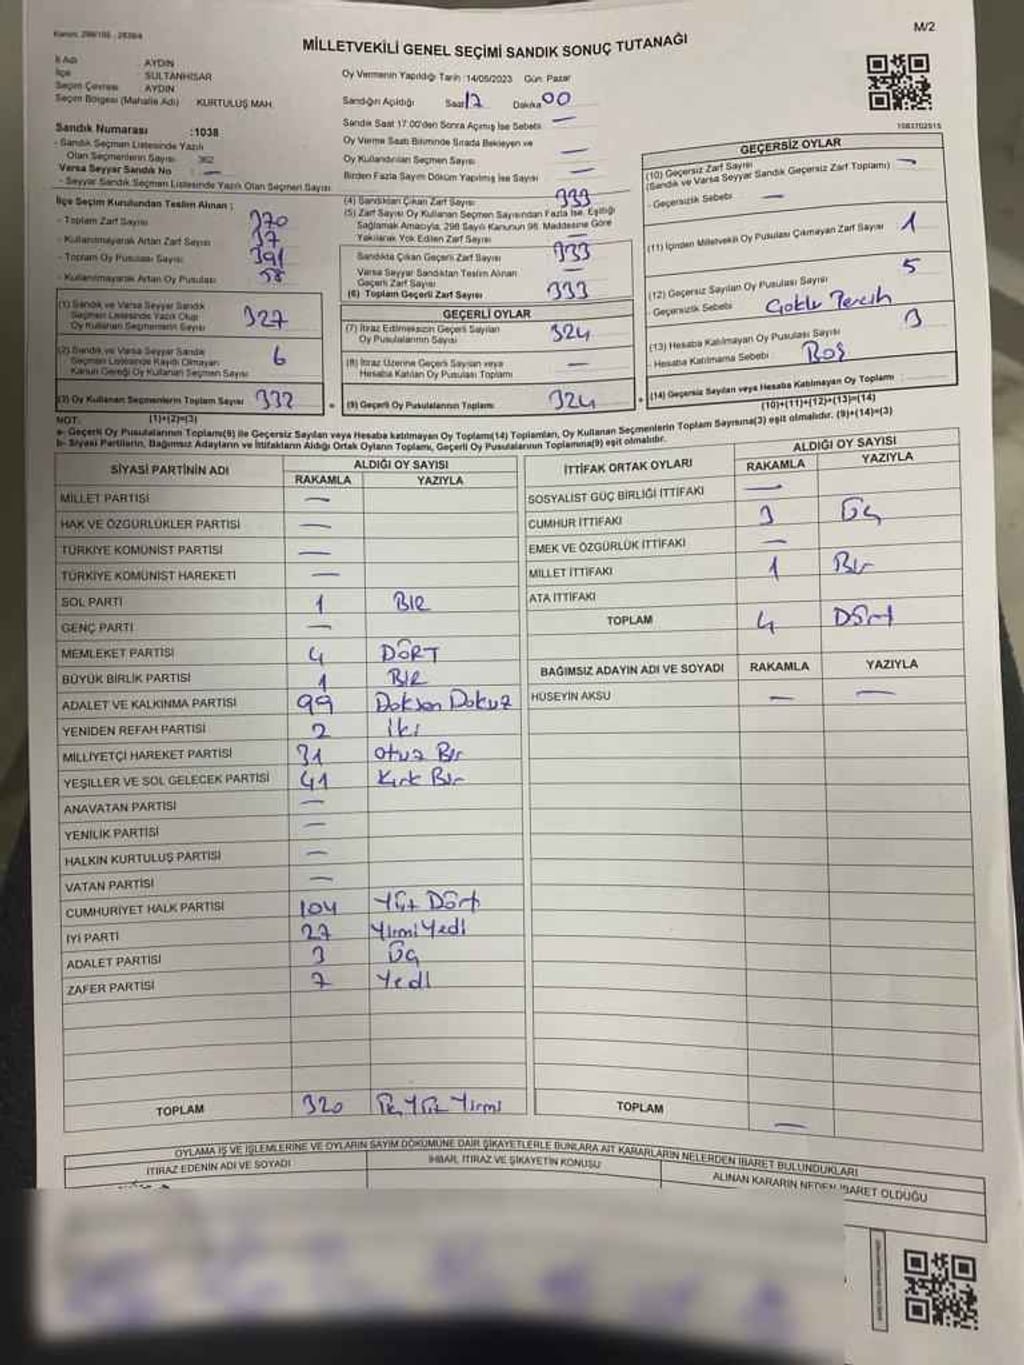 Kanun: 298/105 - 2839/4
M/2
MİLLETVEKİLİ GENEL SEÇİMİ SANDIK SONUÇ TUTANAĞI
İl Adı : AYDIN
İlçe : SULTANHİSAR
Seçim Çevresi : AYDIN
Seçim Bölgesi (Mahalle Adı) KURTULUŞ MAH.
Sandık Numarası :1038
- Sandık Seçmen Listesinde Yazılı
Olan Seçmenlerin Sayısı 362
Varsa Seyyar Sandık No : —
- Seyyar Sandık Seçmen Listesinde Yazılı Olan Seçmen Sayısı
Oy Vermenin Yapıldığı Tarih :14/05/2023 Gün: Pazar
Sandığın Açıldığı Saat 17 Dakika 00
Sandık Saat 17:00'den Sonra Açılmış İse Sebebi —
Oy Verme Saati Bitiminde Sırada Bekleyen ve
Oy Kullandırılan Seçmen Sayısı —
Birden Fazla Sayım Döküm Yapılmış İse Sayısı —
1083702915
İlçe Seçim Kurulundan Teslim Alınan :
- Toplam Zarf Sayısı 370
- Kullanılmayarak Artan Zarf Sayısı 37
- Toplam Oy Pusulası Sayısı 391
- Kullanılmayarak Artan Oy Pusulası 58
(1) Sandık ve Varsa Seyyar Sandık
Seçmen Listesinde Yazılı Olup
Oy Kullanan Seçmenlerin Sayısı 327
(2) Sandık ve Varsa Seyyar Sandık
Seçmen Listesinde Kaydı Olmayan
Kanun Gereği Oy Kullanan Seçmen Sayısı 6
(3) Oy Kullanan Seçmenlerin Toplam Sayısı 332
(4) Sandıktan Çıkan Zarf Sayısı 333
(5) Zarf Sayısı Oy Kullanan Seçmen Sayısından Fazla İse, Eşitliği
Sağlamak Amacıyla, 298 Sayılı Kanunun 98. Maddesine Göre
Yakılarak Yok Edilen Zarf Sayısı —
Sandıkta Çıkan Geçerli Zarf Sayısı 333
Varsa Seyyar Sandıktan Teslim Alınan
Geçerli Zarf Sayısı —
(6) Toplam Geçerli Zarf Sayısı 333
GEÇERLİ OYLAR
(7) İtiraz Edilmeksizin Geçerli Sayılan
Oy Pusulalarının Sayısı 324
(8) İtiraz Üzerine Geçerli Sayılan veya
Hesaba Katılan Oy Pusulası Toplamı —
(9) Geçerli Oy Pusulalarının Toplamı 324
GEÇERSİZ OYLAR
(10) Geçersiz Zarf Sayısı
(Sandık ve Varsa Seyyar Sandık Geçersiz Zarf Toplamı) —
- Geçersizlik Sebebi —
(11) İçinden Milletvekili Oy Pusulası Çıkmayan Zarf Sayısı 1
(12) Geçersiz Sayılan Oy Pusulası Sayısı 5
- Geçersizlik Sebebi Çoklu Tercih
(13) Hesaba Katılmayan Oy Pusulası Sayısı 3
- Hesaba Katılmama Sebebi Boş
(14) Geçersiz Sayılan veya Hesaba Katılmayan Oy Toplamı
NOT: (1)+(2)=(3)
(10)+(11)+(12)+(13)=(14)
a- Geçerli Oy Pusulalarının Toplamı(9) ile Geçersiz Sayılan veya Hesaba katılmayan Oy Toplamı(14) Toplamları, Oy Kullanan Seçmenlerin Toplam Sayısına(3) eşit olmalıdır. (9)+(14)=(3)
b- Siyasi Partilerin, Bağımsız Adayların ve İttifakların Aldığı Ortak Oyların Toplamı, Geçerli Oy Pusulalarının Toplamına(9) eşit olmalıdır.
SİYASİ PARTİNİN ADI ALDIĞI OY SAYISI
RAKAMLA YAZIYLA
MİLLET PARTİSİ —
HAK VE ÖZGÜRLÜKLER PARTİSİ —
TÜRKİYE KOMÜNİST PARTİSİ —
TÜRKİYE KOMÜNİST HAREKETİ —
SOL PARTİ 1 BİR
GENÇ PARTİ —
MEMLEKET PARTİSİ 4 DÖRT
BÜYÜK BİRLİK PARTİSİ 1 BİR
ADALET VE KALKINMA PARTİSİ 99 Doksan Dokuz
YENİDEN REFAH PARTİSİ 2 iki
MİLLİYETÇİ HAREKET PARTİSİ 31 Otuz Bir
YEŞİLLER VE SOL GELECEK PARTİSİ 41 Kırk Bir
ANAVATAN PARTİSİ —
YENİLİK PARTİSİ —
HALKIN KURTULUŞ PARTİSİ —
VATAN PARTİSİ —
CUMHURİYET HALK PARTİSİ 104 Yüz Dört
İYİ PARTİ 27 Yirmi Yedi
ADALET PARTİSİ 3 Üç
ZAFER PARTİSİ 7 Yedi
TOPLAM 320 Üç Yüz Yirmi
İTTİFAK ORTAK OYLARI ALDIĞI OY SAYISI
RAKAMLA YAZIYLA
SOSYALİST GÜÇ BİRLİĞİ İTTİFAKI —
CUMHUR İTTİFAKI 3 Üç
EMEK VE ÖZGÜRLÜK İTTİFAKI —
MİLLET İTTİFAKI 1 Bir
ATA İTTİFAKI
TOPLAM 4 Dört
BAĞIMSIZ ADAYIN ADI VE SOYADI RAKAMLA YAZIYLA
HÜSEYİN AKSU — —
TOPLAM —
OYLAMA İŞ VE İŞLEMLERİNE VE OYLARIN SAYIM DÖKÜMÜNE DAİR ŞİKAYETLERLE BUNLARA AİT KARARLARIN NELERDEN İBARET BULUNDUKLARI
İTİRAZ EDENİN ADI VE SOYADI İHBAR, İTİRAZ VE ŞİKAYETİN KONUSU ALINAN KARARIN NEDEN İBARET OLDUĞU